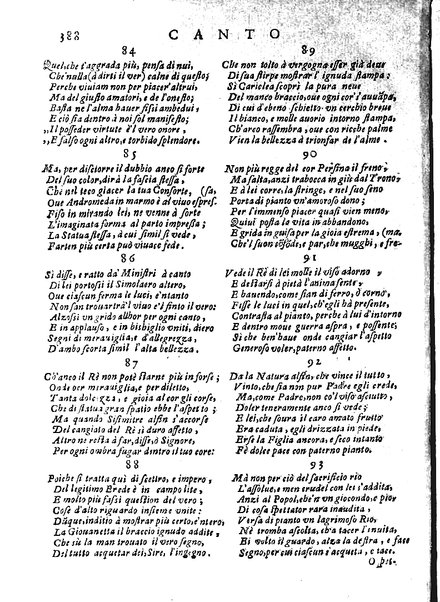 388 CANTO
84
Quel, che t'aggrada più, pensa di nui,
Che nulla (à dirti il ver) calne di questo;
Perche viviam non per piacer'altrui,
Ma del giusto amatori, e de l'onesto;
Basta ne l'alma haver sissi ambedui,
E ciò sia dentro à noi sol manifesto;
,,Il posseder virtute è'l vero onore,
,,E' falso ogni altro, e torbido splendore.
85
Ma, per disciorre il dubbio anco si forte
Del suo color, dirà la fascia stessa,
Chè nel teco giacer la tua Consorte,
Que Andromeda in marmo è al vivo espres- (sa,
Fiso in mirando lei, ne venne à sorte
L'imaginata forma al parto impressa;
La Statua stessa, à cui simil si vede,
Partem più certa può vivace fede.
86
Sì disse, e ratto da' Ministri à canto
Di lei portossi il Simolacro altero,
Que ciascun ferme le luci, e'ntanto
Non san trovar trà'l vivo e'l finto il vero:
Alzossi un grido allhor per ogni canto,
E in applauso, e in bisbiglio uniti, diero
Segni di meraviglia, e d'allegrezza,
D'ambo scorta simil l'alta bellezza.
87
Cò'anco il Rè non potè starne più in forse;
Onde per meraviglia, e per diletto,
Tanta dolcezza, e gioia al cor gli corse,
Che di statua gran spatio ebbe l'aspetto;
Ma quando Sisimitre alfin s'accorse
Del cangiato del Rè sì duro affetto,
Altro ne resta à far, disse, ò Signore,
Per ogni ombra fugar dentro il tuo core:
88
Poiche si tratta quì di scettro, e impero,
Del legitimo Erede è in campo lite,
E molto più fassi question del vero;
Cose d'alto riguardo insieme unite:
Dũque, indditio à mostrar più certo, e'ntero,
La Giovanetta il braccio ignudo addite,
Che sia la man trovato il vero segno,
Del tutto acquetar dei, Sire, l'ingegno.
89
Che non tolto à vergogna esser già deve
Di sua stirpe mostrar l'ignuda stampa;
Sì Cariclea scoprì la pura neve
Del manco braccio, ove ogni cor s'avvãpa,
Di cui d'ebeno schietto un cerchio breve
Il bianco, e molle avorio intorno stampa,
Ch'arco rassembra, ove con ricche palme
Vien la bellezza à trionfar de l'alme.
90
Non più regge del cor Persina il freno,
Ma salta, anzi trabocca in giù dal Trono,
E à lei corre, la stringe, e nel suo seno
Porta di pianto un'amoroso dono;
Per l'immenso piacer quasi vien meno,
Quivi posta la vita in abbandono,
E grida in guisa per la gioia estrema (ma,
Che'l suon rassẽbr, e par, che mugghi, e fre-
91
Vede il Rè di lei molle il viso adorno,
E destarsi à pietà l'anima sente;
E havendo, come sian di ferro, ò corno,
Fisse le luci in quel, ch'egli hà presente,
Contrasta al pianto, perche à lui d'intorno
E dentro move guerra aspra, e possente,
Sì che ben'have onde cangiar l'aspetto
Generoso voler, paterno affetto.
92
Da la Natura alfin, che vince il tutto,
Vinto, che sia non pur Padre egli crede,
Ma, come Padre, non co'l viso asciutto,
Doler teneramente anco si vede;
E lei, che fuora il caro amato frutto
Era caduta, egli drizzata in piede,
Erse la Figlia ancora, e seco intanto
Fè dolce pace con paterno pianto.
93
Mà non per ciò del sacrificio rio
L'assolve, e men crudel con lei s'addita,
Anzi al Popol, che'n un giocondo, e pio
Di cosa spettator rara inaudita,
Versa di pianto un lagrimoso Rio,
Nè tromba ascolta, ch'à tacer l'invita,
Ei volto il guardo, alza la destra, e face
Segno, per cui ciascun s'acqueta, e tace.
O pre-